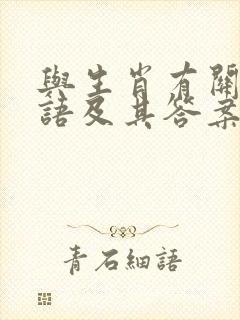 與生肖有關
語及其答案
青石細語